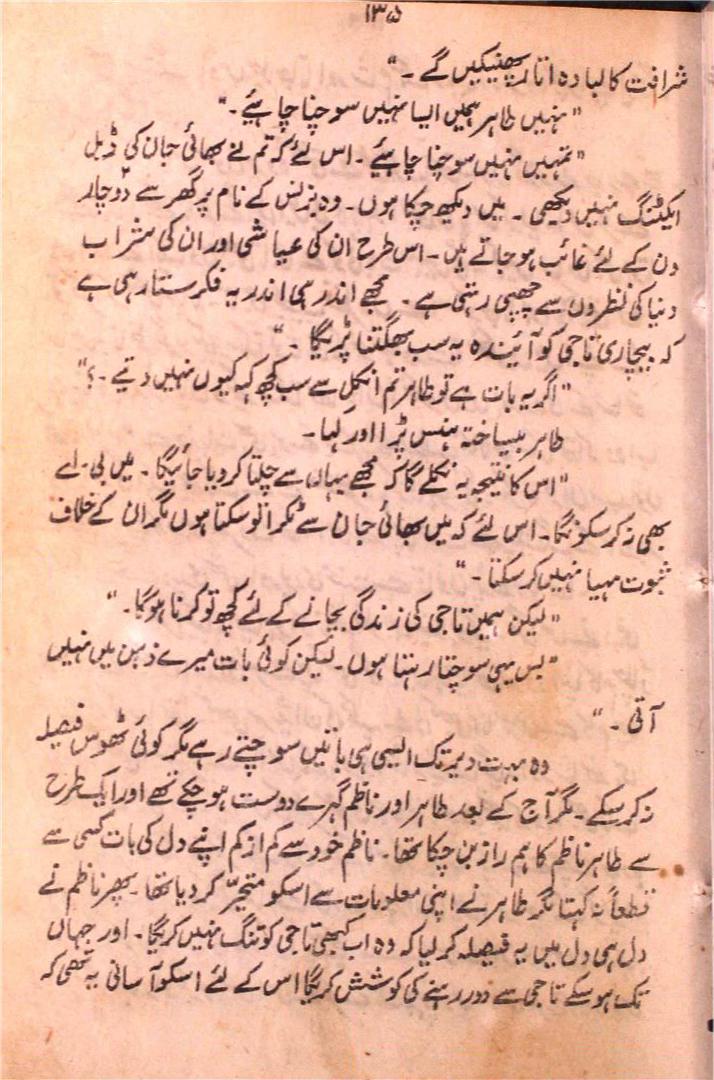 ۱۳۵
شرافت کا لبادہ اتار پھینکیں گے ۔"
"نہیں طاہر ہمیں ایسا نہیں سوچنا چاہیے ۔"
"تمہیں نہیں سوچنا چاہیے ۔ اس لئے کہ تم نے بھائی جان کی ڈبل
ایکٹنگ نہیں دیکھی ۔ میں دیکھ چکا ہوں ۔ وہ بزنس کے نام پر گھر سے دو چار
دن کے لئے غائب ہو جاتے ہیں ۔ اس طرح ان کی عیاشی اور ان کی شراب
دنیا کی نظروں سے چھپی رہتی ہے ۔ مجھے اندر ہی اندر یہ فکر ستا رہی ہے
کہ بیچاری تاجی کو آئیندہ یہ سب بھگتنا پڑیگا ۔"
"اگر یہ بات ہے تو طاہر تم انکل سے سب کچھ کہہ کیوں نہیں دیتے ۔؟"
طاہر بیساختہ ہنس پڑا اور کہا ۔
"اس کا نتیجہ یہ نکلے گا کہ مجھے یہاں سے چلتا کر دیا جائیگا ۔ میں بی ۔ اے
بھی نہ کر سکونگا ۔ اس لئے کہ میں بھائی جان سے ٹکرا تو سکتا ہوں مگر ان کے خلاف
ثبوت مہیا نہیں کر سکتا ۔"
"لیکن ہمیں تاجی کی زندگی بچانے کے لئے کچھ تو کرنا ہوگا ۔"
"بس یہی سوچتا رہتا ہوں ۔ لیکن کوئی بات میرے ذہن میں نہیں
آتی ۔"
وہ بہت دیر تک ایسی ہی باتیں سوچتے رہے مگر کوئی ٹھوس فیصلہ
نہ کر سکے ۔ مگر آج کے بعد طاہر اور ناظم گہرے دوست ہو چکے تھے اور ایک طرح
سے طاہر ناظم کا ہم راز بن چکا تھا ۔ ناظم خود سے کم از کم اپنے دل کی بات کسی سے
قطعاً نہ کہتا مگر طاہر نے اپنی معلومات سے اسکو متحیّر کر دیا تھا ۔ پھر ناظم نے
دل ہی دل میں یہ فیصلہ کر لیا کہ وہ اب کبھی تاجی کو تنگ نہیں کریگا ۔ اور جہاں
تک ہو سکے تاجی سے دور رہنے کی کوشش کریگا اس کے لئے اسکو آسانی یہ تھی کہ